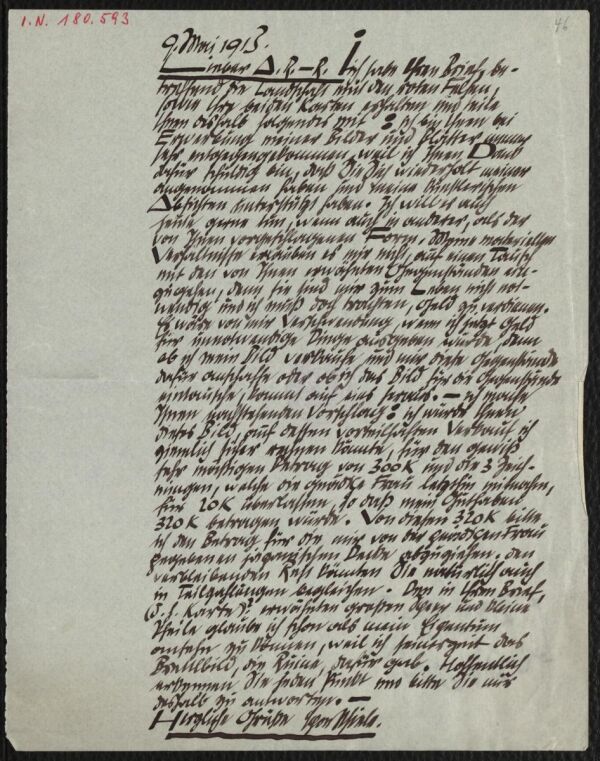 I.N. 180.593
46
9. Mai 1913.
Lieber D. R.–R. Ich habe Ihren Brief, be-
treffend die Landschaft mit den roten Felsen,
sowie Ihre beiden Karten erhalten und teile
Ihnen deshalb folgendes mit: ich bin Ihnen bei
Erwerbung meiner Bilder und Blätter immer
sehr entgegengekommen, weil ich Ihnen Dank
dafür schuldig bin, daß Sie sich wiederholt meiner
angenommen haben und meine künstlerischen
Absichten unterstützt haben. Ich will es auch
heute gerne tun, wenn auch in anderer, als der
von Ihnen vorgeschlagenen Form. Meine materiellen
Verhältnisse erlauben es mir nicht, auf einen Tausch
mit den von Ihnen erwähnten Gegenständen ein-
zugehen, denn sie sind mir zum Leben nicht not-
wendig und ich muß doch trachten, Geld zu verdienen.
Es wäre von mir Verschwendung, wenn ich jetzt Geld
für unnotwendige Dinge ausgeben würde, denn
ob ich mein Bild verkaufe und mir diese Gegenstände
dafür anschaffe oder ob ich das Bild für die Gegenstände
eintausche, kommt auf eins heraus. – ich mache
Ihnen nachstehenden Vorschlag: ich würde Ihnen
dieses Bild, auf dessen vorteilhaften Verkauf ich
ziemlich sicher rechnen könnte, für den gewiß
sehr mäßigen Betrag von 300 K und die 3 Zeich-
nungen, welche die gnädige Frau letzthin mitnahm,
für 20 K überlassen, so daß mein Guthaben
320 K betragen würde. Von diesen 320 K bitte
ich den Betrag für die mir von der gnädigen Frau
gegebenen japanischen Decke abzuziehen. den
verbleibenden Rest könnten Sie natürlich auch
in Teilzahlungen begleichen. Den in Ihrem Brief,
erwähnten großen und kleine
Theile glaube ich schon als mein Eigentum
ansehn zu können, weil ich seinerzeit das
Brettlbild, die Ruine, dafür gab. Hoffentlich
erkennen Sie jeden Punkt und bitte Sie mir
deshalb zu antworten. –
Herzliche Grüße Egon Schiele.